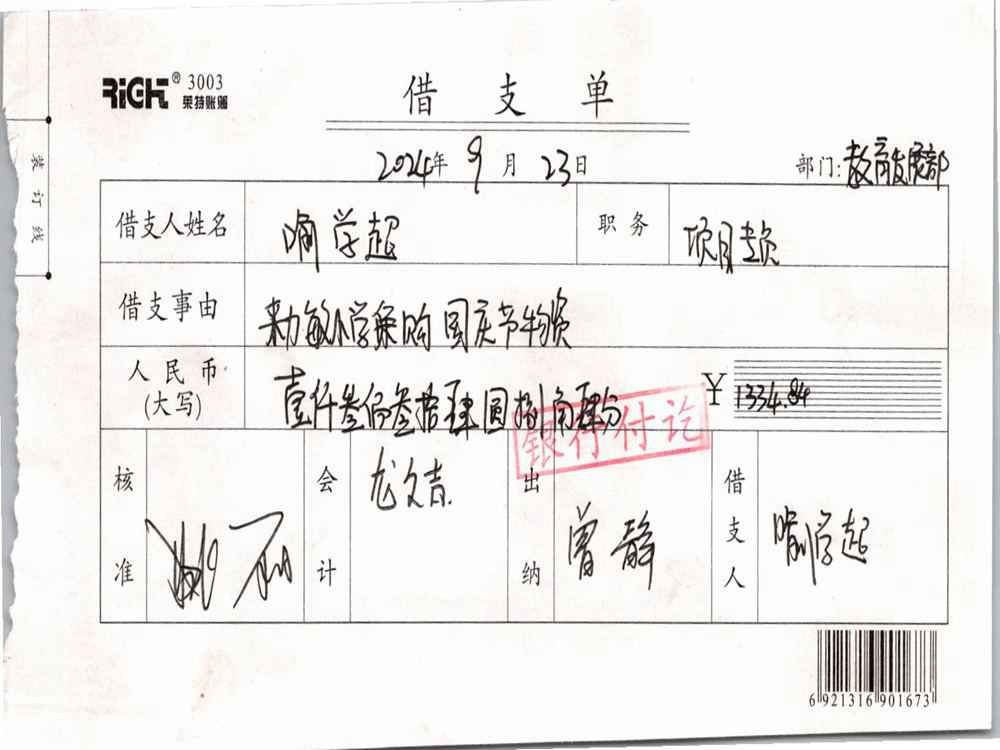 RiGHT® 3003
莱特账簿
借支单
2024年 9月 23日
部门: 教育发展部
装订线
借支人姓名 喻学起 职务 项目专员
借支事由 敏小学采购国庆节物资
人民币 (大写) 壹仟叁佰叁拾肆圆捌角肆分 ¥ 1334.84
银行付讫
核准 会计 龙文吉 出纳 曾静 借支人 喻学起
6 921316 901673